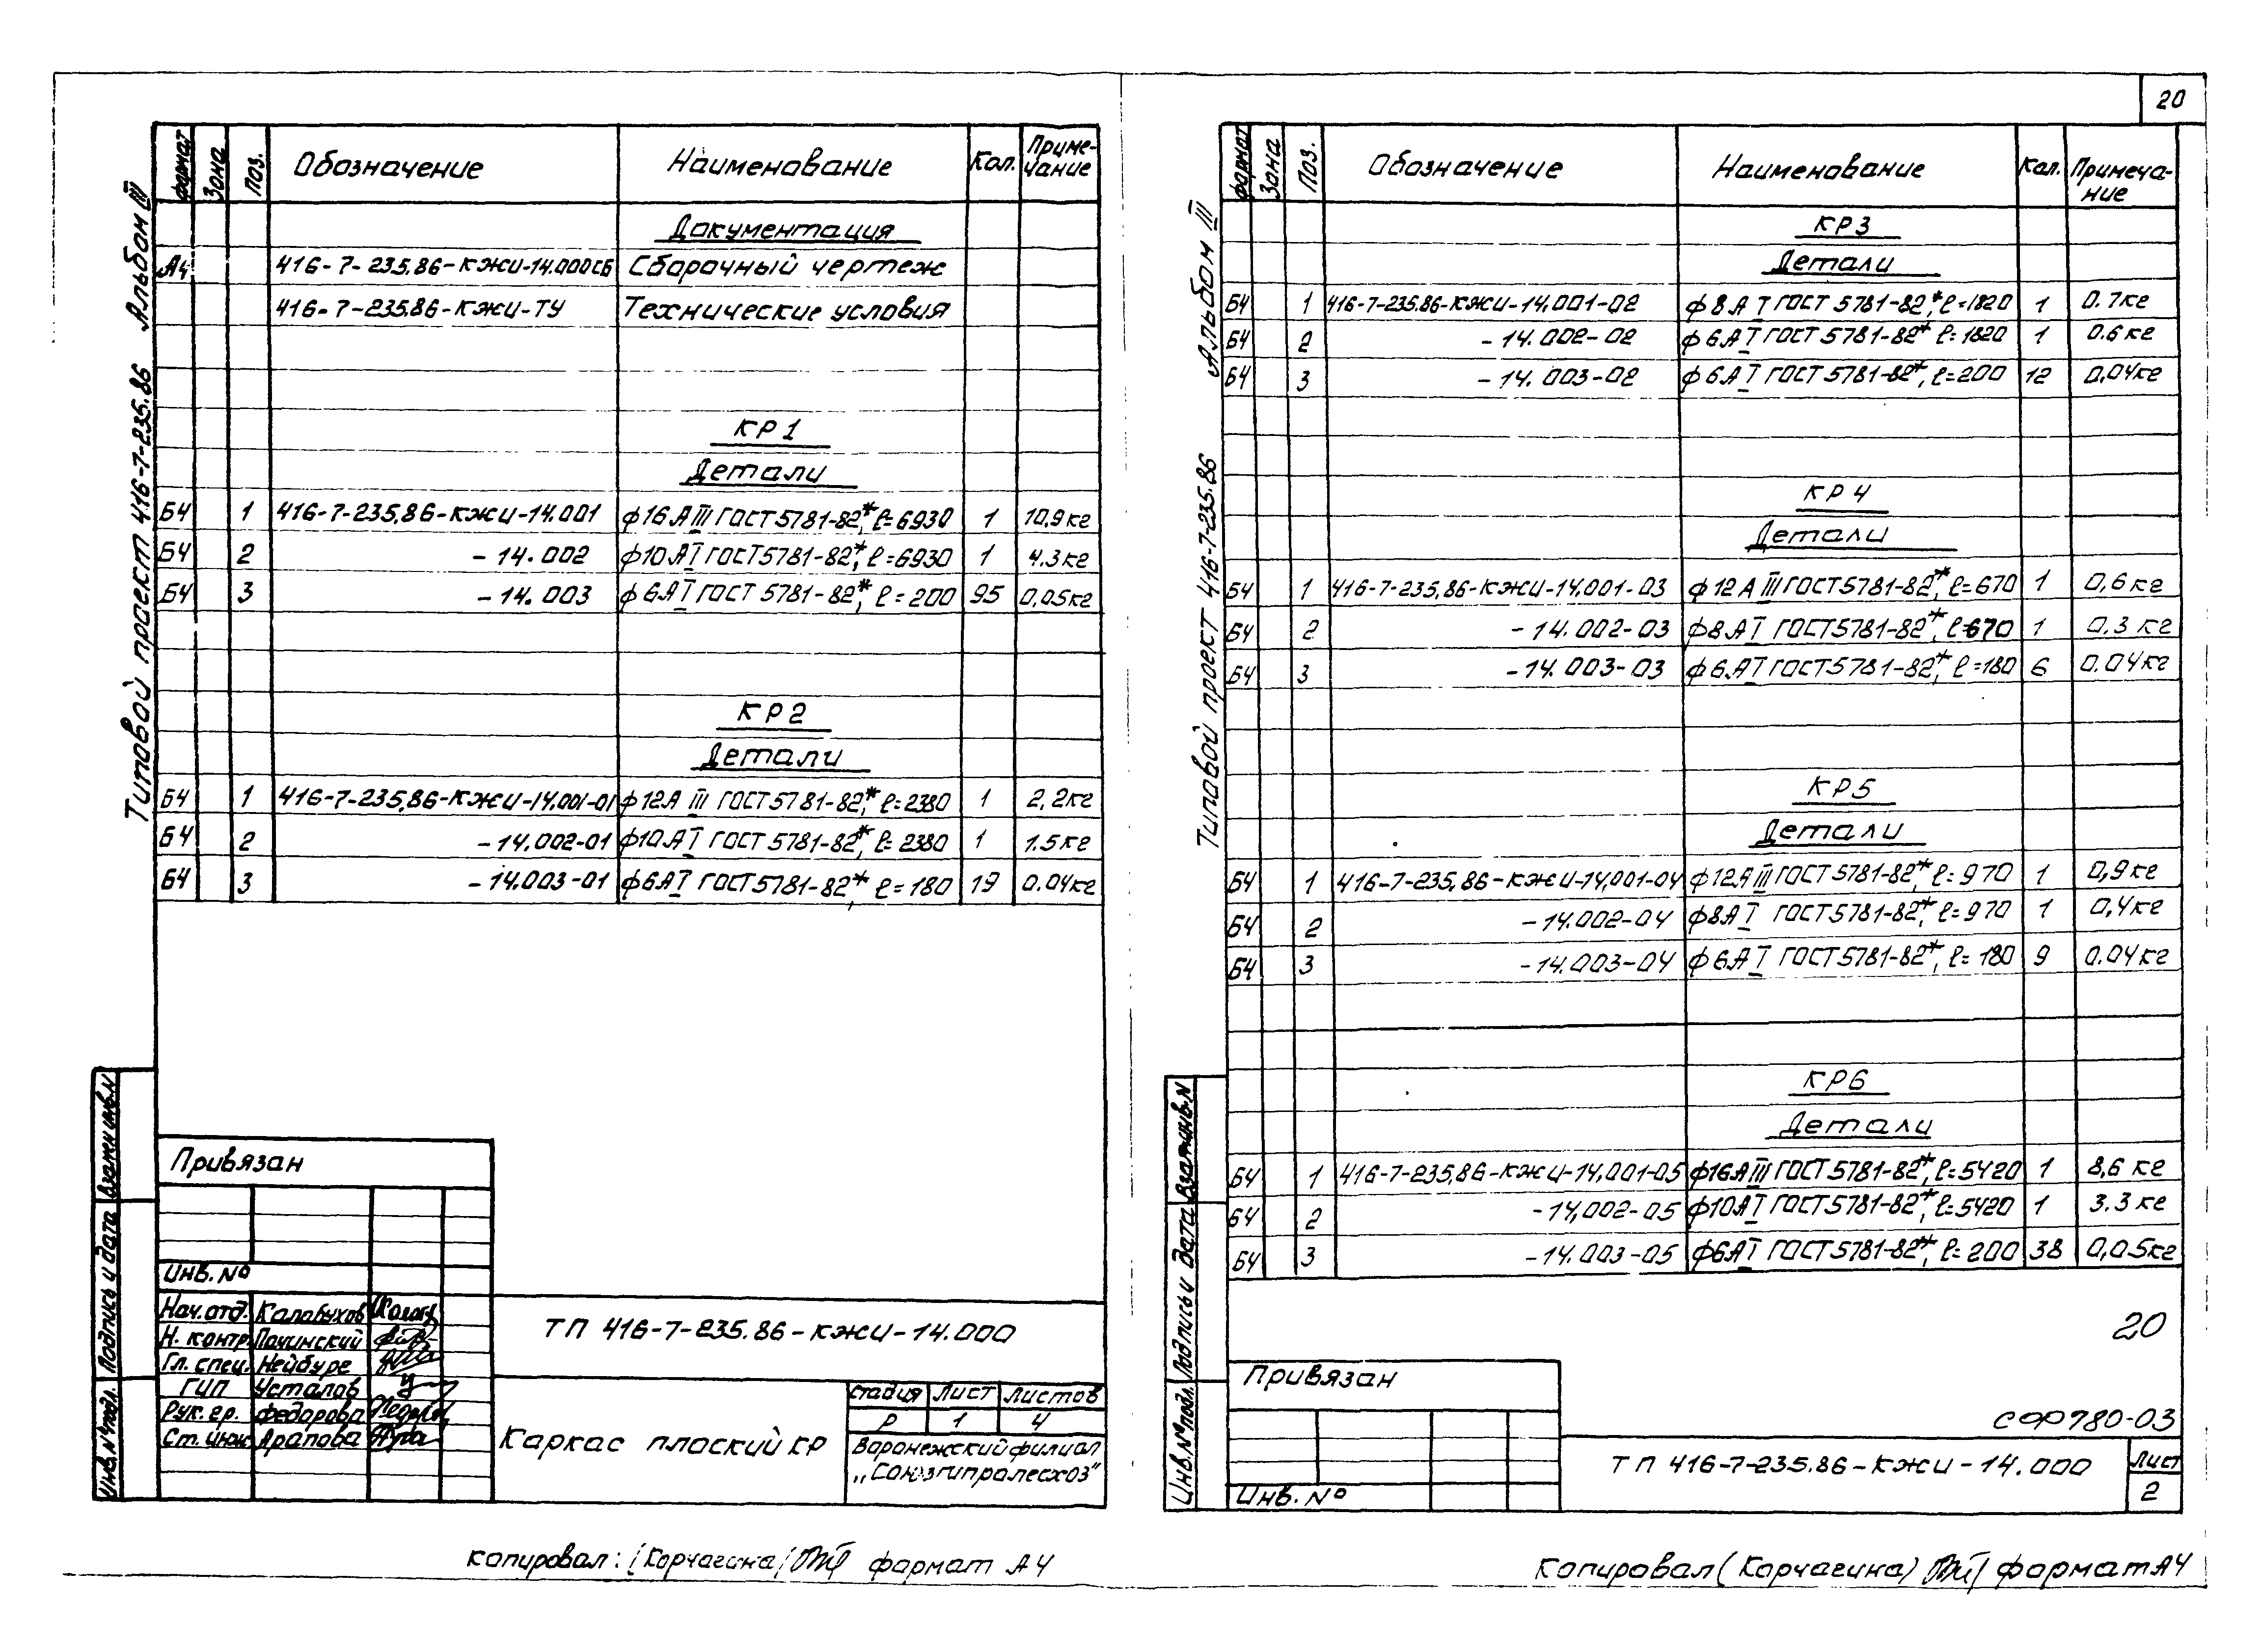 20
Типовой проект 416-7-235.86 Альбом III
формат Зона Поз. Обозначение Наименование Кол. Примечание
Документация
А4 416-7-235.86-КЖИ-14.000СБ Сборочный чертеж
416-7-235.86-КЖИ-ТУ Технические условия
КР1
Детали
Б4 1 416-7-235.86-КЖИ-14.001 ф16АIII ГОСТ 5781-82*, ℓ=6930 1 10,9кг
Б4 2 -14.002 ф10АI ГОСТ 5781-82*, ℓ=6930 1 4.3кг
Б4 3 -14.003 ф6АI ГОСТ 5781-82*, ℓ=200 95 0,05кг
КР2
Детали
Б4 1 416-7-235.86-КЖИ-14.001-01 ф12А III ГОСТ 5781-82*, ℓ=2380 1 2,2кг
Б4 2 -14.002-01 ф10АI ГОСТ 5781-82*, ℓ=2380 1 1.5кг
Б4 3 -14.003-01 ф6АI ГОСТ 5781-82*, ℓ=180 19 0.04кг
Инв.№подл. Подпись и дата Взамен инв.N
Привязан
Инв.№
Нач.отд. Калабухов
Н. контр. Починский
Гл. спец. Нейбуре
ГИП Усталов
Рук.гр. Федорова
Ст. инж Арапова
ТП 416-7-235.86-КЖИ-14.000
Каркас плоский КР
стадия Лист Листов
Р 1 4
Воронежский филиал
„Союзгипролесхоз"
Копировал: (Корчагина) формат А4
Типовой проект 416-7-235.86 Альбом III
формат Зона Поз. Обозначение Наименование Кол. Примечание
КР3
Детали
Б4 1 416-7-235.86-КЖИ-14.001-02 ф8А I ГОСТ 5781-82*, ℓ=1820 1 0.7кг
Б4 2 -14.002-02 ф6АI ГОСТ 5781-82* ℓ=1820 1 0.6кг
Б4 3 -14.003-02 ф6АI ГОСТ 5781-82*, ℓ=200 12 0,04кг
КР4
Детали
Б4 1 416-7-235.86-КЖИ-14.001-03 ф12А III ГОСТ 5781-82*, ℓ=670 1 0,6кг
Б4 2 -14.002-03 ф8АI ГОСТ 5781-82*, ℓ=670 1 0.3 кг
Б4 3 -14.003-03 ф6АI ГОСТ 5781-82*, ℓ=180 6 0.04кг
КР5
Детали
Б4 1 416-7-235.86-КЖИ-14,001-04 ф12АIII ГОСТ 5781-82*, ℓ=970 1 0,9кг
Б4 2 -14.002-04 ф8АI ГОСТ 5781-82*, ℓ=970 1 0,4кг
Б4 3 -14.003-04 ф6АI ГОСТ 5781-82*, ℓ=180 9 0.04кг
КР6
Детали
Б4 1 416-7-235,86-КЖИ-14,001-05 ф16АIII ГОСТ 5781-82*, ℓ=5420 1 8,6 кг
Б4 2 -14,002-05 ф10АI ГОСТ 5781-82*, ℓ=5420 1 3.3 кг
Б4 3 -14.003-05 ф6АI ГОСТ 5781-82*, ℓ=200 38 0,05кг
20
Инв.№подл. Подпись и дата Взам.инв.N
Привязан
Инв.№
СФ780-03
ТП 416-7-235.86-КЖИ-14.000
Лист
2
Копировал (Корчагина) формат А4